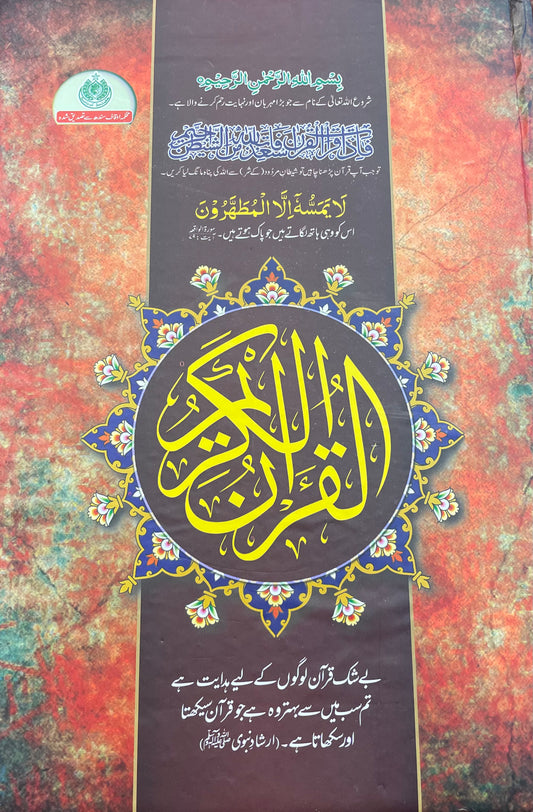 بِسْمِ اللهِ الرَّحْمٰنِ الرَّحِيْمِ
شروع اللہ تعالیٰ کے نام سے جو بڑا مہربان اور نہایت رحم کرنے والا ہے۔
محکمہ اوقاف سندھ سے تصدیق شدہ
فَإِذَا قَرَأْتَ الْقُرْآنَ فَاسْتَعِذْ بِاللَّهِ مِنَ الشَّيْطَانِ الرَّجِيمِ
تو جب آپ قرآن پڑھنا چاہیں تو شیطان مردود (کے شر) سے اللہ کی پناہ مانگ لیا کریں۔
لَا يَمَسُّهٗۤ اِلَّا الْمُطَهَّرُوْنَ
اس کو وہی ہاتھ لگاتے ہیں جو پاک ہوتے ہیں۔
القرآن الكريم
بے شک قرآن لوگوں کے لیے ہدایت ہے
تم سب میں سے بہتر وہ ہے جو قرآن سیکھتا
اور سکھاتا ہے۔ (ارشادِ نبوی ﷺ)